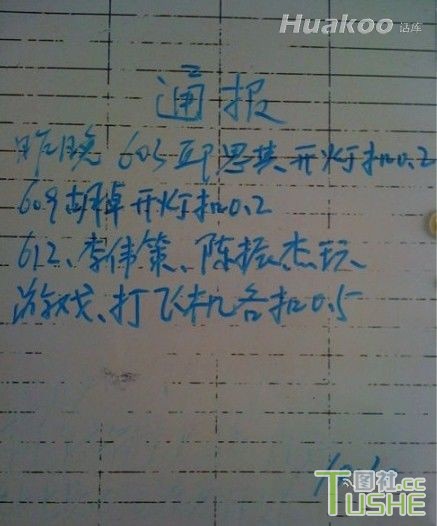 Huakoo 话库
通报
昨晚 605 邱思其开灯扣0.2
609 胡卓开灯扣0.2
612、李伟策、陈振杰玩
游戏、打飞机各扣0.5
图社.cc
TUSHE